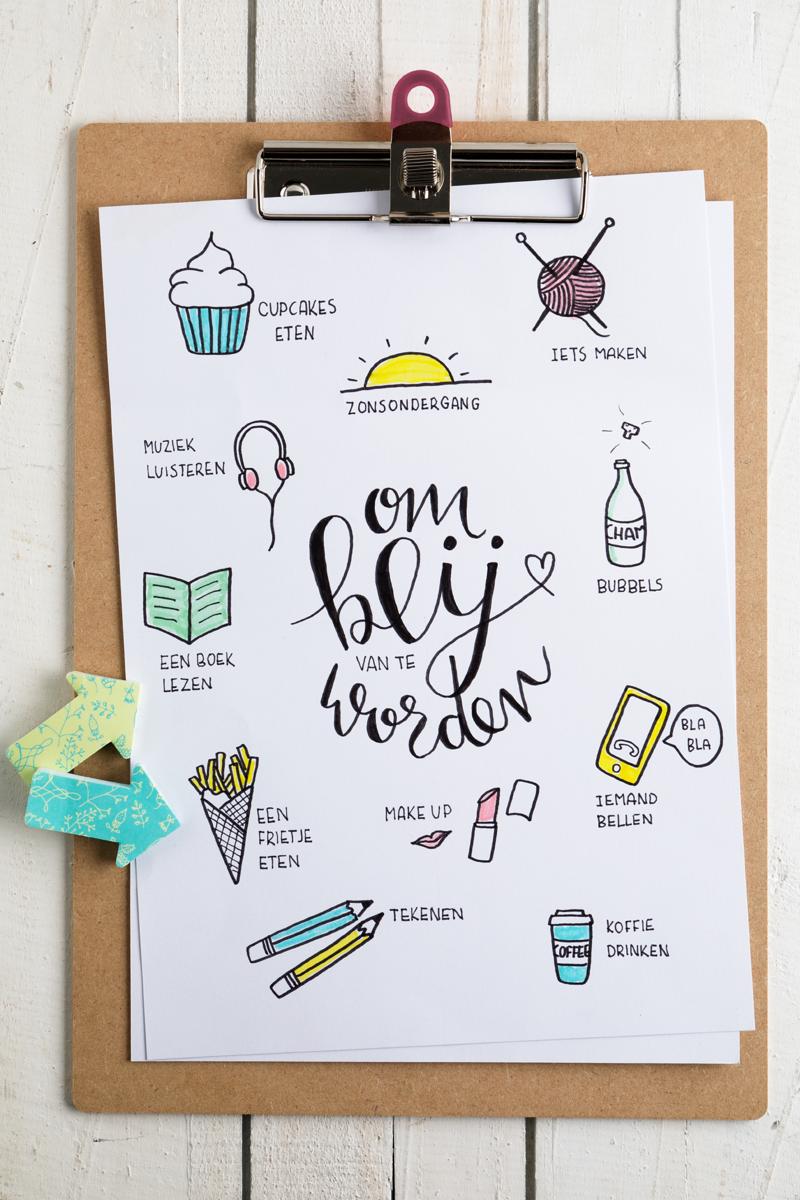 CUPCAKES
ETEN
IETS MAKEN
ZONSONDERGANG
MUZIEK
LUISTEREN
CHAM
BUBBELS
om
blij
VAN TE
worden
EEN BOEK
LEZEN
BLA
BLA
IEMAND
BELLEN
EEN
FRIETJE
ETEN
MAKE UP
TEKENEN
COFFEE
KOFFIE
DRINKEN